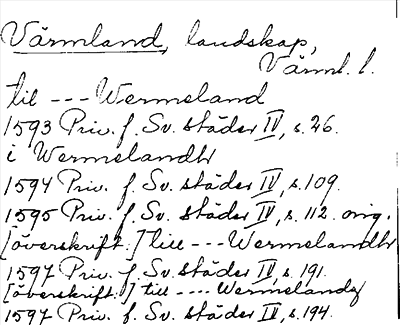 Värmland, landskap,
Värml. l.
till --- Wermeland
1593 Priv. f. Sv. städer IV, s. 26.
i Wermelandh
1594 Priv. f. Sv. städer IV, s. 109.
1595 Priv. f. Sv. städer IV, s. 112. orig.
[överskrift:] till --- Wermelandh
1597 Priv. f. Sv. städer IV, s. 191.
[överskrift:] till --- Wermelandz
1597 Priv. f. Sv. städer IV, s. 194.